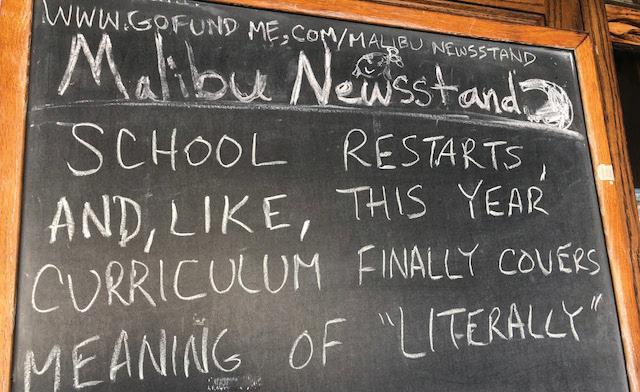 WWW.GOFUND ME,COM/MALIBU NEWSSTAND
Malibu Newsstand
SCHOOL RESTARTS,
AND, LIKE, THIS YEAR
CURRICULUM FINALLY COVERS
MEANING OF "LITERALLY"